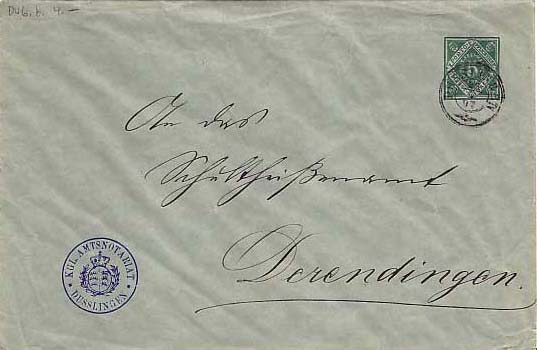 An das
Schultheißenamt
Derendingen.
KGL. AMTSNOTARIAT
DUSSLINGEN